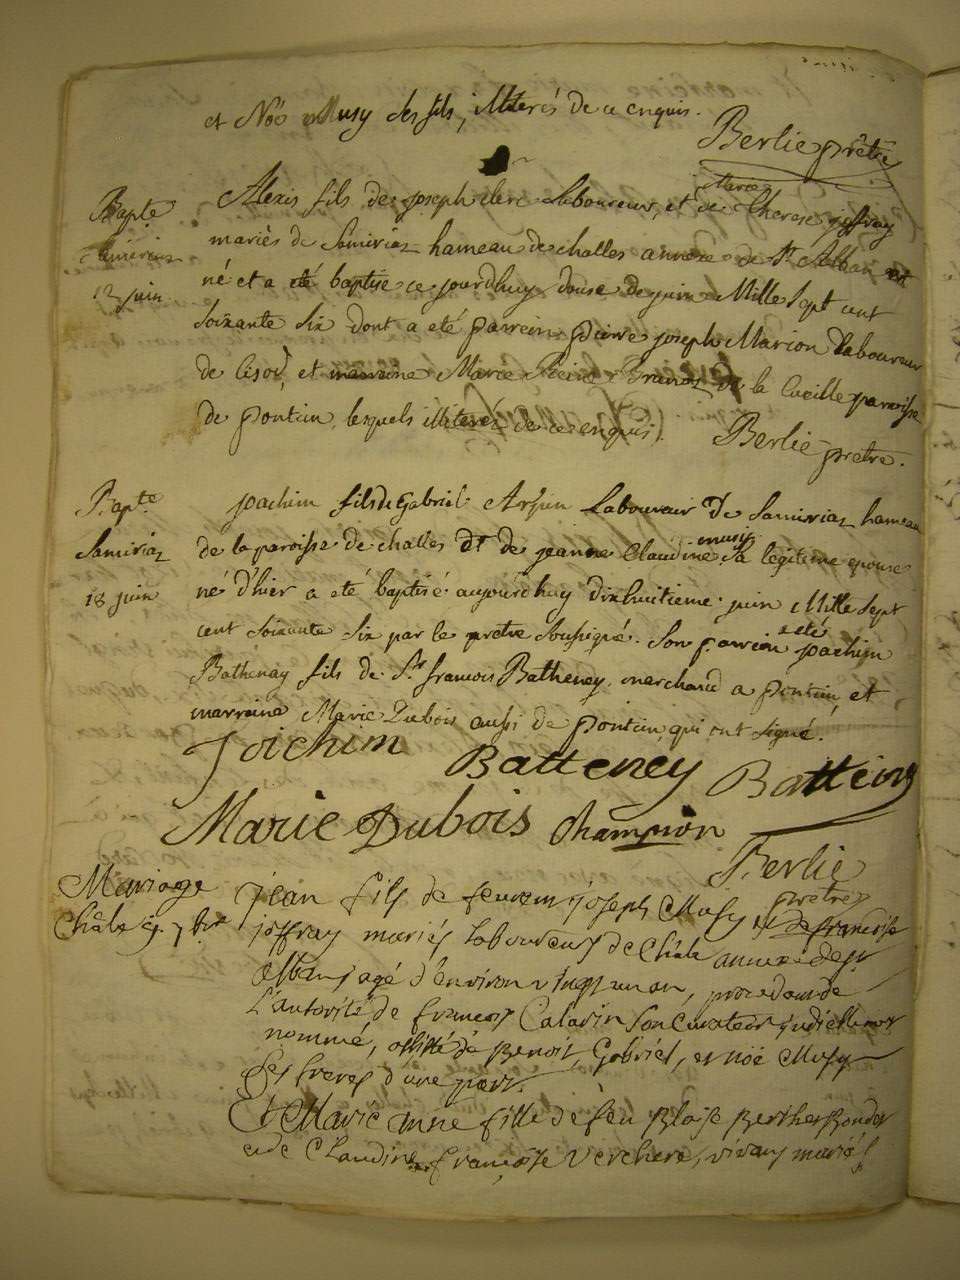 et Noé Musy ses fils, illiterés de ce enquis.
Berlie prêtre
Bapte
12 juin
Alexis fils de joseph clerc Laboureur, et de Marie Therese joffray
mariés de Samiriaz hameau de challes annexe de St Alban est
né et a eté baptisé ce jourdhuy douse de juin Mille Sept cent
Soixante Six dont a eté parrein pierre joseph Marion Laboureur
de Lisod, et marraine Marie Reine Brunos de la Cueille parroisse
de pontcin, lesquels illiterés de ce enquis.
Berlie prêtre.
Bapte
Samiriaz
18 juin
joachim fils de Gabriel Laboureur de Samiriaz hameau
de la paroisse de challes et de jeanne Claudine musy Sa legitime epouse
né d'hier a eté baptisé aujourdhuy dixhuitieme juin Mille Sept
cent Soixante Six par le pretre Soussigné. Son parrein a eté joachim
Bathenay fils de Sr francois Batheney marchand a pontcin, et
marraine Marie Dubois aussi de pontcin, qui ont signé.
Joichim Batteney
Marie Dubois Champion
Berlie prêtre
Mariage
Châle 9. 7bre
jean fils de feu joseph Musy et de francoise
joffray mariés Laboureurs de Châle annexe de St
Alban, agé d'environ vingt un an, procedant de
L'autorité de francois Calarin Son Curateur
nommé, assisté de Benoit, Gabriel, et noë Musy
Ses freres d'une part.
Et Marie anne fille de feu Blaise
et de Claudine francoise Verchere, vivans mariés